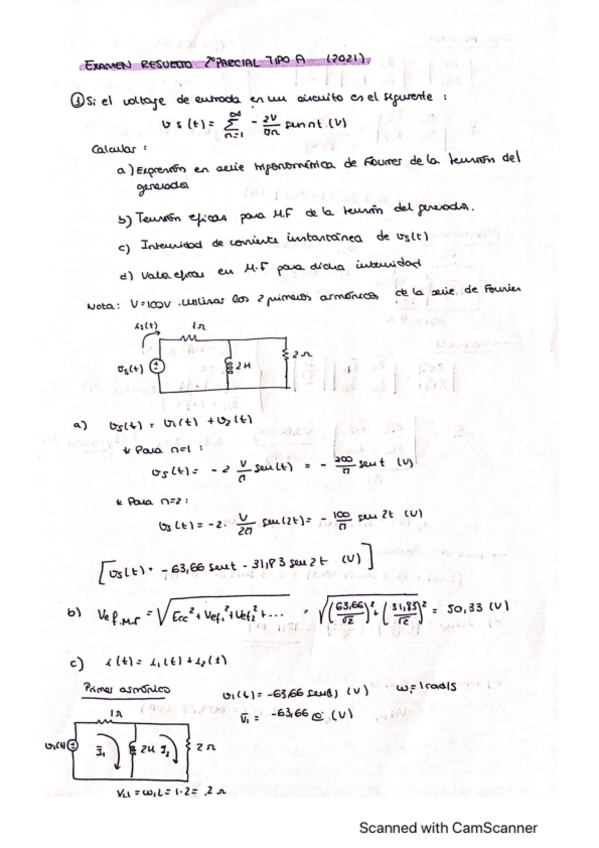 EXAMEN RESUELTO 2º PARCIAL TIPO A (2021)
① Si el voltaje de entrada en un circuito es el siguiente :
vs(t) = ∞ Σ n=1 - 2V/πn sen nt (V)
Calcular :
a) Expresión en serie trigonométrica de Fourier de la tensión del
generador
b) Tensión eficaz para M.F de la tensión del generador.
c) Intensidad de corriente instantánea de vs(t)
d) Valor eficaz en M.F para dicha intensidad
Nota: V=100V . Utilizar los 2 primeros armónicos de la serie de Fourier
is(t) 1Ω
vs(t) 2H 2Ω
a) vs(t) = v1(t) + v2(t)
* Para n=1 :
vs(t) = -2 V/π sen(t) = - 200/π sen t (V)
* Para n=2 :
vs(t) = -2 · V/2π sen(2t) = - 100/π sen 2t (V)
[vs(t) = -63,66 sent - 31,83 sen 2t (V)]
b) Vef.M.F = √(Ecc² + Vef1² + Vef2² + ...) = √((63,66/√2)² + (31,83/√2)²) = 50,33 (V)
c) i(t) = i1(t) + i2(t)
Primer armónico v1(t) = -63,66 sen(t) (V) ω=1rad/s
V̄1 = -63,66 (V)
1Ω
v1(t) Ī1 2H Ī2 2Ω
XL1 = ω1L = 1·2 = 2Ω
Scanned with CamScanner